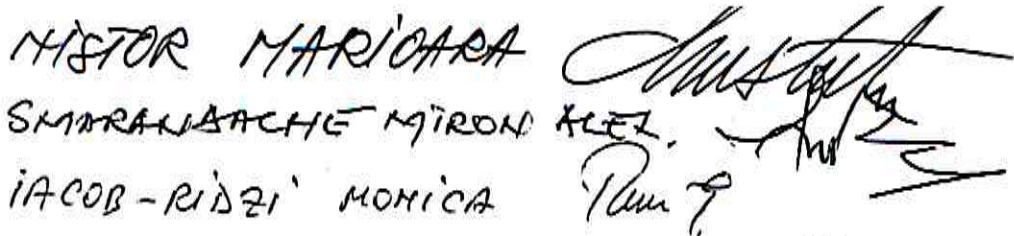 NISTOR MARIOARA
SMARANDACHE MIRON ALEX.
IACOB-RIDZI MONICA